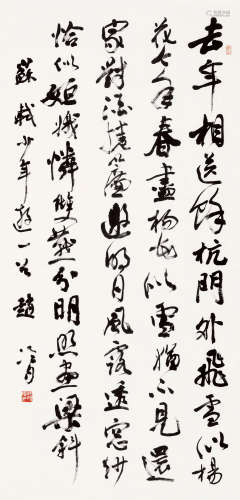 去年相送餘杭門外飛雪似楊
花今年春盡楊花似雪猶不見還
家對酒捲簾邀明月風露透窗紗
恰似姮娥憐雙燕分明照畫梁斜
蘇軾少年遊一首 趙冷月